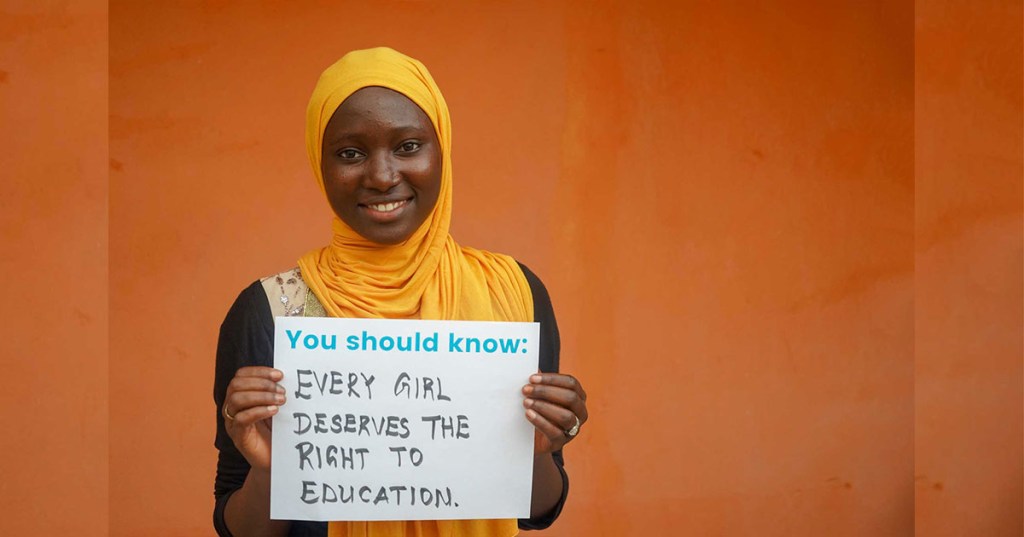 You should know:
EVERY GIRL
DESERVES THE
RIGHT TO
EDUCATION.